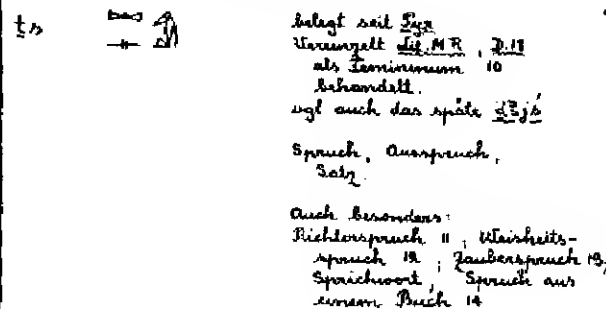 ṯs
belegt seit Pyr
Vereinzelt Lit. M R, D. 18
als Femininum 10
behandelt.
vgl auch das späte ḏꜣjś
Spruch, Ausspruch,
Satz.
Auch besonders:
Richterspruch 11, Weisheits-
spruch 12, Zauberspruch 13,
Sprichwort, Spruch aus
einem Buch 14